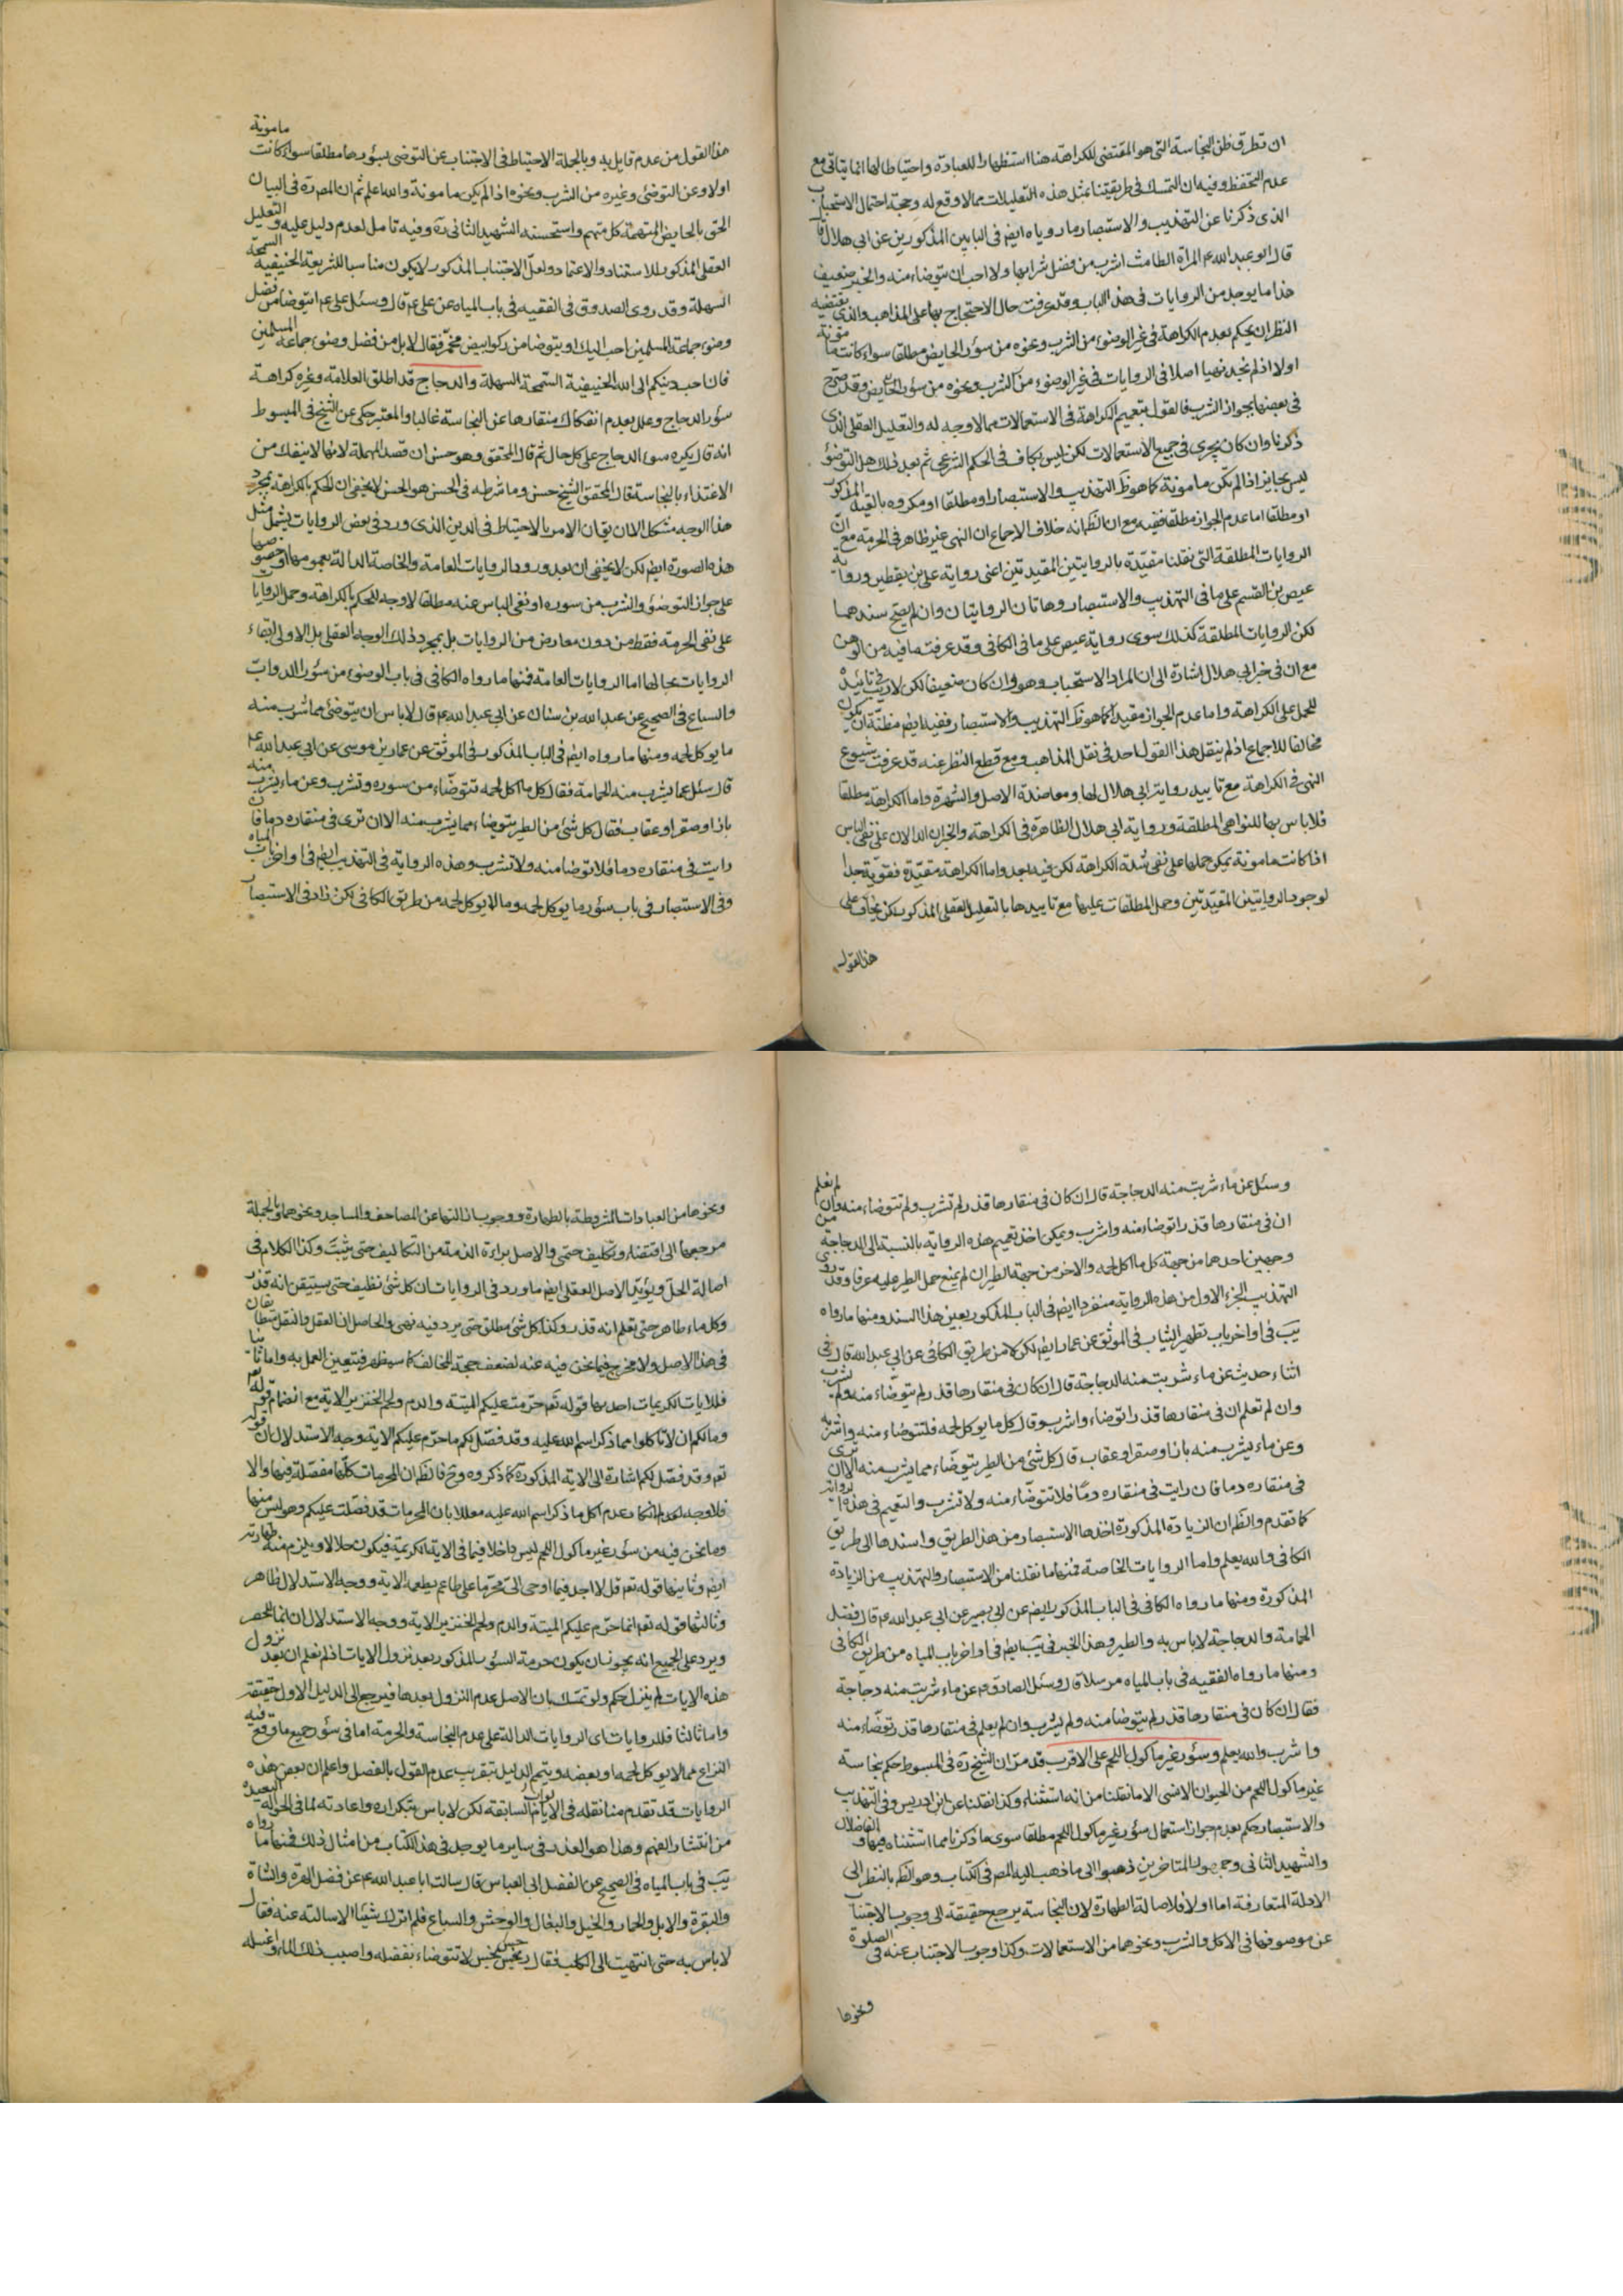 ان تطرق ظن النجاسة التي هو المقتضي للكراهة هنا استظهارا للعبادة واحتياطا لها انما يتاتى مع
عدم التحفظ وفيه ان التمسك في طريقتنا بمثل هذه التعليلات مما لا وقع له وحجة احتمال الاستحباب
الذي ذكرنا عن التهذيب والاستبصار ما روياه ايضا في البابين المذكورين عن ابي هلال قا
قال ابو عبد الله ع المراة الطامث اشرب من فضل شرابها ولا احب ان تتوضاء منه والخبر ضعيف
هذا ما يوجد من الروايات في هذا الباب وقد عرفت حال الاحتجاج بها على المذاهب والذي يقتضيه
النظر ان يحكم بعدم الكراهة في غير الوضوء من الشرب ونحوه من سؤر الحايض مطلقا سواء كانت مامونة
اولا اذ لم نجد نهيا اصلا في الروايات في غير الوضوء من الشرب ونحوه من سؤر الحايض وقد صرح
في بعضها بجواز الشرب فالقول بتعميم الكراهة في الاستعمالات مما لا وجه له والتعليل العقلي الذي
ذكرنا وان كان يجري في جميع الاستعمالات لكن ليس بكاف في الحكم الشرعي ثم بعد ذلك هل التوضؤ
ليس بجايز اذا لم يكن مامونة كما هو ظ التهذيب والاستبصار او مطلقا او مكروه بالقيد المذكور
او مطلقا اما عدم الجواز مطلقا ففيه مع ان الظ انه خلاف الاجماع ان النهي غير ظاهر في الحرمة مع انّ
الروايات المطلقة التي نقلنا مقيدة بالروايتين المقيدتين اعني رواية علي بن يقطين ورواية
عيص بن القسم على ما في التهذيب والاستبصار وهاتان الروايتان وان لم يصح سندهما
لكن الروايات المطلقة كذلك سوى رواية عيص على ما في الكافي وقد عرفت ما فيه من الوهن
مع ان في خبر ابي هلال اشارة الى ان المراد الاستحباب وهو وان كان ضعيفا لكن لا ريب في تاييده
للحمل على الكراهة واما عدم الجواز مقيدا كما هو ظ التهذيب والاستبصار ففيه ايضا مظنة ان يكون
مخالفا للاجماع اذ لم ينقل هذا القول احد في نقل المذاهب ومع قطع النظر عنه قد عرفت شيوع
النهي في الكراهة مع تاييد رواية ابي هلال لها ومعاضدة الاصل والشهرة واما الكراهة مطلقا
فلا باس بها للنواهي المطلقة ورواية ابي هلال الظاهرة في الكراهة والخبران الدالان على نفي الباس
اذا كانت مامونة يمكن حملها على نفي شدة الكراهة لكن فيه بعد واما الكراهة مقيدة فقوية جدا
لوجود الروايتين المقيدتين وحمل المطلقات عليها مع تاييدها بالتعليل العقلي المذكور لكن يخاف على
هذا القول
هذا القول من عدم قايل به وبالجملة الاحتياط في الاجتناب عن التوضي بسؤرها مطلقا سواء كانت مامونة
اولا وعن التوضي وغيره من الشرب ونحوه اذا لم يكن مامونة والله اعلم ثم ان المص ره في البيان
الحق بالحايض المتهمة كل متهم واستحسنه الشهيد الثاني ره وفيه تامل لعدم دليل عليه والتعليل
العقلي المذكور للاستناد والاعتماد ولعل الاجتناب المذكور لا يكون مناسبا للشريعة الحنيفية السمحة
السهلة وقد روى الصدوق في الفقيه في باب المياه عن علي ع م قال وسئل علي ع م ايتوضا من فضل
وضوء جماعة المسلمين احب اليك او يتوضا من ركو ابيض مخمر فقال لا بل من فضل وضوء جماعة المسلمين
فان احب دينكم الى الله الحنيفية السمحة السهلة والدجاج قد اطلق العلامة وغيره كراهة
سؤر الدجاج وعلل بعدم انفكاك منقارها عن النجاسة غالبا والمعتبر حكى عن الشيخ في المبسوط
انه قال يكره سؤر الدجاج على كل حال ثم قال المحقق وهو حسن ان قصد المهملة لانها لا ينفك من
الاغتذاء بالنجاسة قال المحقق الشيخ حسن وما شرطه في الحسن هو الحسن لا يخفى ان الحكم بالكراهة بمجرد
هذا الوجه مشكل الا ان يقال ان الامر بالاحتياط في الدين الذي ورد في بعض الروايات يشمل مثل
هذه الصورة ايضا لكن لا يخفى ان بعد ورود الروايات العامة والخاصة الدالة بعمومها او خصوصها
على جواز التوضؤ والشرب من سوره او نفي الباس عنه مطلقا لا وجه للحكم بالكراهة وحمل الروايات
على نفي الحرمة فقط من دون معارض من الروايات بل بمجرد ذلك الوجه العقلي بل الاولى ابقاء
الروايات بحالها اما الروايات العامة فمنها ما رواه الكافي في باب الوضوء من سؤر الدواب
والسباع في الصحيح عن عبد الله بن سنان عن ابي عبد الله ع م قال لا باس ان يتوضى مما شرب منه
ما يوكل لحمه ومنها ما رواه ايضا في الباب المذكور في الموثق عن عمار بن موسى عن ابي عبد الله ع م
قال سئل عما يشرب منه الحمامة فقال كل ما اكل لحمه تتوضاء من سوره وتشرب وعن ماء شرب منه
باز او صقر او عقاب فقال كل شئ من الطير يتوضاء مما يشرب منه الا ان ترى في منقاره دما فان
رايت في منقاره دما فلا توضا منه ولا تشرب وهذه الرواية في التهذيب ايضا في اواخر باب المياه
وفي الاستبصار في باب سؤر ما يوكل لحمه وما لا يوكل لحمه من طريق الكافي لكن زاد في الاستبصار
وسئل عن ماء شربت منه الدجاجة قال ان كان في منقارها قذر لم تشرب ولم تتوضاء منه وان لم تعلم
ان في منقارها قذرا توضاء منه واشرب ويمكن اخذ تعميم هذه الرواية بالنسبة الى الدجاجة من
وجهين احدهما من جهة كل ما اكل لحمه والاخر من جهة الطير ان لم يمنع حمل الطير عليه عرفا وقد روى في
التهذيب الجزء الاول من هذه الرواية منفردا ايضا في الباب المذكور بعين هذا السند ومنها ما رواه
يب في اواخر باب تطهير الثياب في الموثق عن عمار ايضا لكن لا من طريق الكافي عن ابي عبد الله قال في
اثناء حديث عن ماء شربت منه الدجاجة قال ان كان في منقارها قذر لم يتوضاء منه ولم يشرب
وان لم تعلم ان في منقارها قذرا توضاء واشرب وقال كل ما يوكل لحمه فلتتوضاء منه واشربه
وعن ماء يشرب منه باز او صقر او عقاب قال كل شئ من الطير يتوضاء مما يشرب منه الا ان ترى
في منقاره دما فان رايت في منقاره دما فلا تتوضاء منه ولا تشرب والتعميم في هذه الرواية
كما تقدم والظ ان الزيادة المذكورة اخذها الاستبصار من هذا الطريق واسندها الى طريق
الكافي والله يعلم واما الروايات الخاصة فمنها ما نقلنا من الاستبصار والتهذيب من الزيادة
المذكورة ومنها ما رواه الكافي في الباب المذكور ايضا عن ابي بصير عن ابي عبد الله ع م قال فضل
الحمامة والدجاجة لا باس به والطير وهذا الخبر في يب ايضا في اواخر باب المياه من طريق الكافي
ومنها ما رواه الفقيه في باب المياه مرسلا قال وسئل الصادق ع م عن ماء شربت منه دجاجة
فقال ان كان في منقارها قذر لم يتوضا منه ولم يشرب وان لم يعلم في منقارها قذر توضاء منه
واشرب والله يعلم وسؤر غير ماكول اللحم على الاقرب قد مر ان الشيخ ره في المبسوط حكم بنجاسة
غير ماكول اللحم من الحيوان الانسي الا ما نقلنا من انه استثناه وكذا نقلنا عن ابن ادريس وفي التهذيب
والاستبصار حكم بعدم جواز استعمال سؤر غير ماكول اللحم مطلقا سوى ما ذكرنا مما استثناه فيهما والفاضلان
والشهيد الثاني وجمهور المتاخرين ذهبوا الى ما ذهب اليه المص في الكتاب وهو الظ بالنظر الى
الادلة المتعارفة اما اولا فلاصالة الطهارة لان النجاسة يرجع حقيقة الى وجوب الاجتناب
عن موصوفها في الاكل والشرب ونحوهما من الاستعمالات وكذا وجوب الاجتناب عنه في الصلوة
ونحوها
ونحوها من العبادات المشروطة بالطهارة ووجوب ازالتها عن المصاحف والمساجد ونحوهما وبالجملة
مرجعها الى اقتضاء وتكليف حتمي والاصل براءة الذمة من التكاليف حتى يثبت وكذا الكلام في
اصالة الحل ويؤيد الاصل العقلي ايضا ما ورد في الروايات ان كل شئ نظيف حتى يستيقن انه قذر
وكل ماء طاهر حتى تعلم انه قذر وكذا كل شئ مطلق حتى يرد فيه نهي والحاصل ان العقل والنقل متطابقان
في هذا الاصل ولا مخرج فيما نحن فيه عنه لضعف حجة المخالف كما سيظهر فيتعين العمل به واما ثانيا
فللايات الكريمات احديها قوله تعم حرمت عليكم الميتة والدم ولحم الخنزير الاية مع انضمام قوله تعم
ومالكم ان لا تاكلوا مما ذكر اسم الله عليه وقد فصل لكم ما حرم عليكم الاية وجه الاستدلال ان قوله
تعم وقد فصل لكم اشارة الى الاية المذكورة كما ذكروه وح فالظ ان المحرمات كلها مفصلة فيها والا
فلا وجه لعدم انكار عدم اكل ما ذكر اسم الله عليه معللا بان المحرمات قد فصلت عليكم وهو ليس منها
وما نحن فيه من سؤر غير ماكول اللحم ليس داخلا فيما في الاية الكريمة فيكون حلالا ويلزم منه طهارته
ايضا وثانيتها قوله تعم قل لا اجد فيما اوحي الي محرما على طاعم يطعمه الاية ووجه الاستدلال ظاهر
وثالثتها قوله تعم انما حرم عليكم الميتة والدم ولحم الخنزير الاية ووجه الاستدلال ان انما للحصر
ويرد على الجميع انه يجوز ان يكون حرمة السؤر المذكور بعد نزول الايات اذ لم نعلم ان بعد نزول
هذه الايات لم ينزل حكم ولو تمسك بان الاصل عدم النزول بعدها فيرجع الى الدليل الاول حقيقة
واما ثالثا فللروايات اي الروايات الدالة على عدم النجاسة والحرمة اما في سؤر جميع ما وقع فيه
النزاع مما لا يوكل لحمه او بعضه ويتم الدليل بتقريب عدم القول بالفصل واعلم ان بعض هذه
الروايات قد تقدم منا نقله في الابواب السابقة لكن لا باس بتكراره واعادته لما في الحوالة البعيدة
من انتشار الفهم وهذا هو العذر في ساير ما يوجد في هذا الكتاب من امثال ذلك فمنها ما رواه
يب في باب المياه في الصحيح عن الفضل ابي العباس قال سالت ابا عبد الله ع م عن فضل الهرة والشاة
والبقرة والابل والحمار والخيل والبغال والوحش والسباع فلم اترك شيئا الا سالته عنه فقال
لا باس به حتى انتهيت الى الكلب فقال رجس نجس لا تتوضاء بفضله واصبب ذلك الماء واغسله